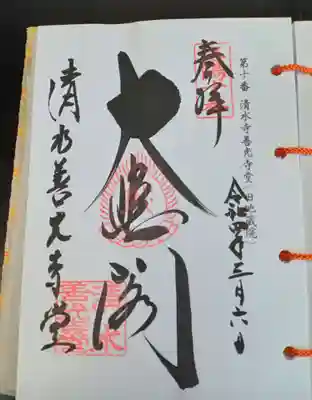 奉拝
第十番 清水寺善光寺堂(旧地蔵院)
令和四年三月六日
大悲閣
清水善光寺堂